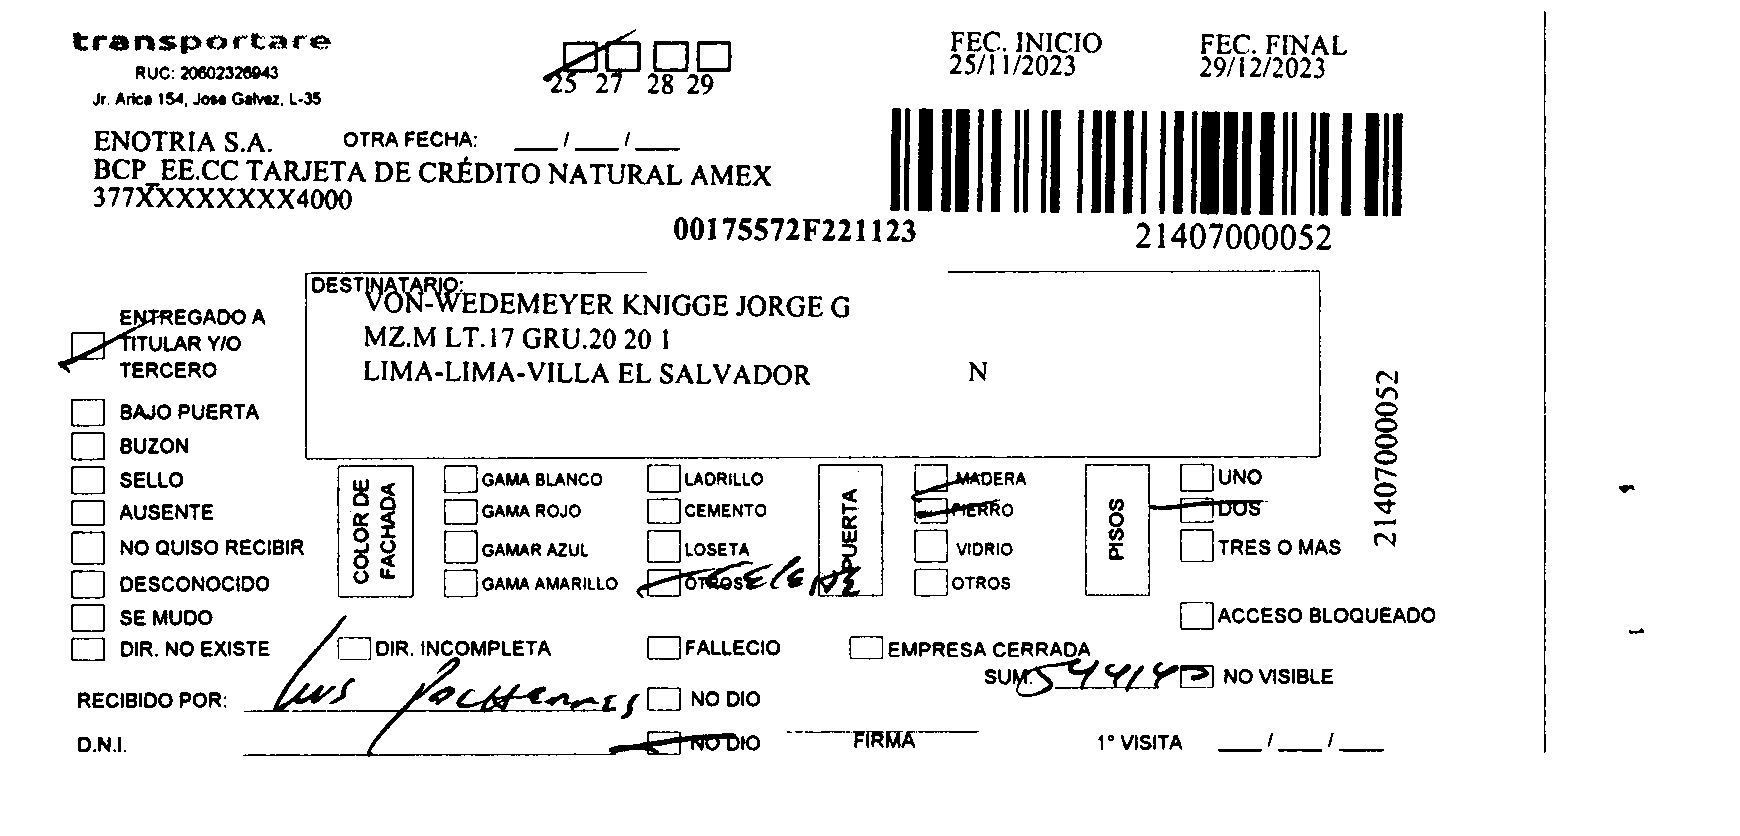 transportare
RUC: 20602326943
Jr. Arica 154, Jose Galvez, L-35
25 27 28 29
FEC. INICIO
25/11/2023
FEC. FINAL
29/12/2023
ENOTRIA S.A. OTRA FECHA: ___/___/___
BCP_EE.CC TARJETA DE CRÉDITO NATURAL AMEX
377XXXXXXXX4000
00175572F221123
21407000052
DESTINATARIO:
VON-WEDEMEYER KNIGGE JORGE G
MZ.M LT.17 GRU.20 20 1
LIMA-LIMA-VILLA EL SALVADOR N
21407000052
ENTREGADO A
TITULAR Y/O
TERCERO
BAJO PUERTA
BUZON
SELLO
AUSENTE
NO QUISO RECIBIR
DESCONOCIDO
SE MUDO
DIR. NO EXISTE
COLOR DE
FACHADA
GAMA BLANCO
GAMA ROJO
GAMAR AZUL
GAMA AMARILLO
LADRILLO
CEMENTO
LOSETA
OTROS
PUERTA
MADERA
FIERRO
VIDRIO
OTROS
PISOS
UNO
DOS
TRES O MAS
ACCESO BLOQUEADO
DIR. INCOMPLETA
FALLECIO
EMPRESA CERRADA
SUM. 544140
NO VISIBLE
RECIBIDO POR: Luis
NO DIO
D.N.I.
NO DIO
FIRMA
1° VISITA ___/___/___